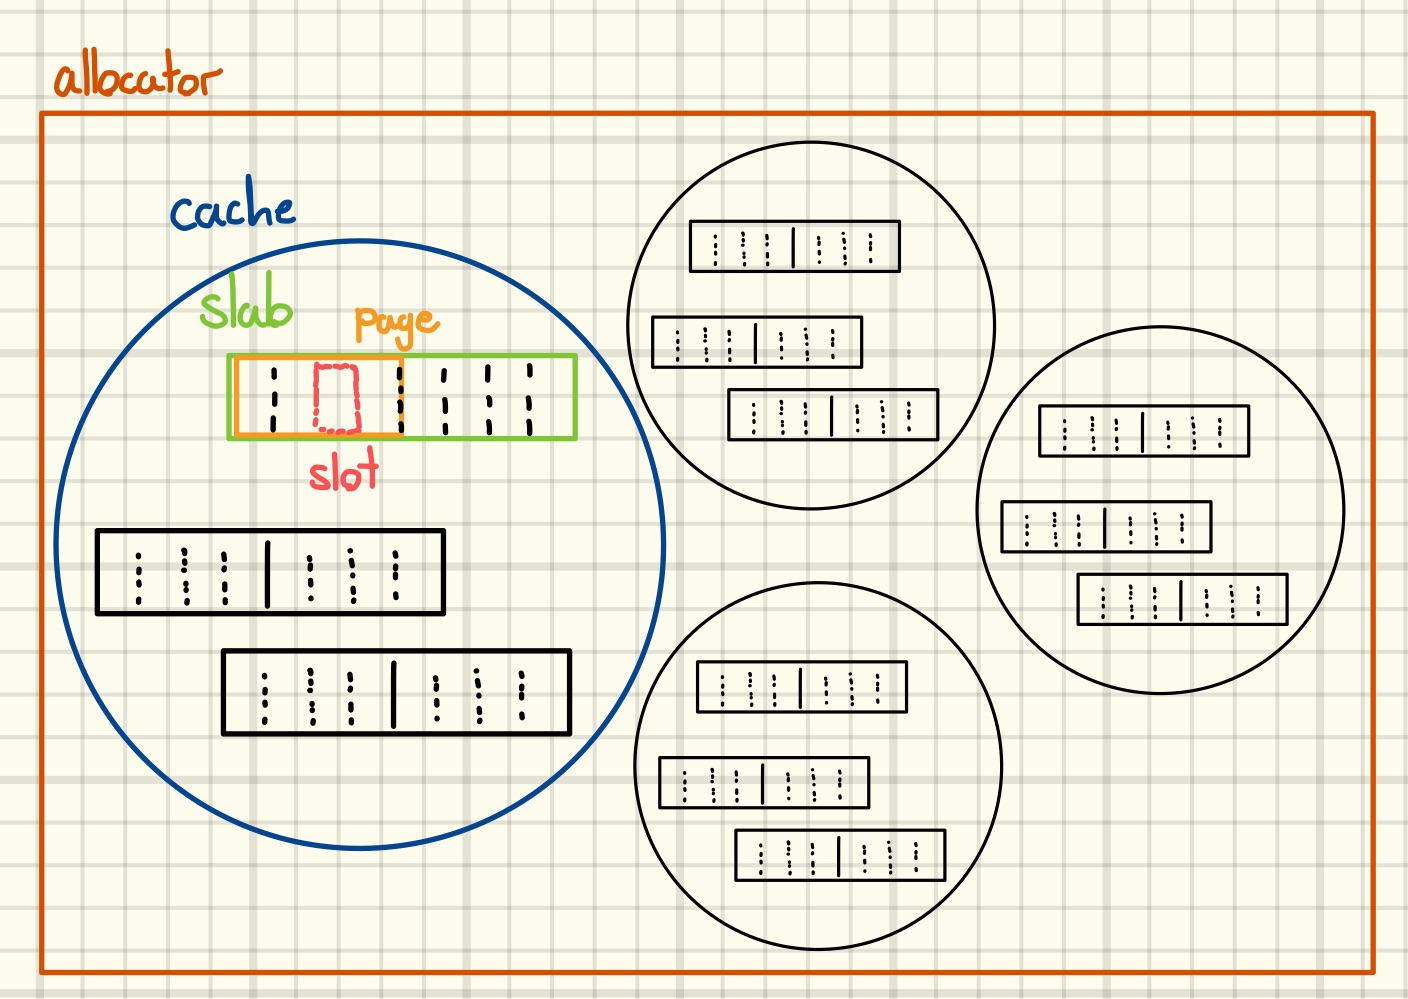 allocator
cache
slab
page
slot